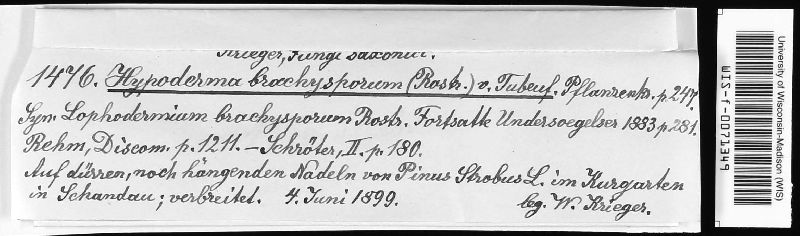 Krieger, Fungi saxonici.
1476. Hypoderma brachysporum (Rostr.) v. Tubeuf. Pflanzenkr. p. 247.
Syn. Lophodermium brachysporum Rostr. Fortsatte Undersoegelser 1883 p. 281.
Rehm, Discom. p. 1211. – Schröter, II. p. 180.
Auf dürren, noch hängenden Nadeln von Pinus Strobus L. im Kurgarten
in Schandau; verbreitet. 4. Juni 1899. leg. W. Krieger.
University of Wisconsin-Madison (WIS)
WIS-f-0071349